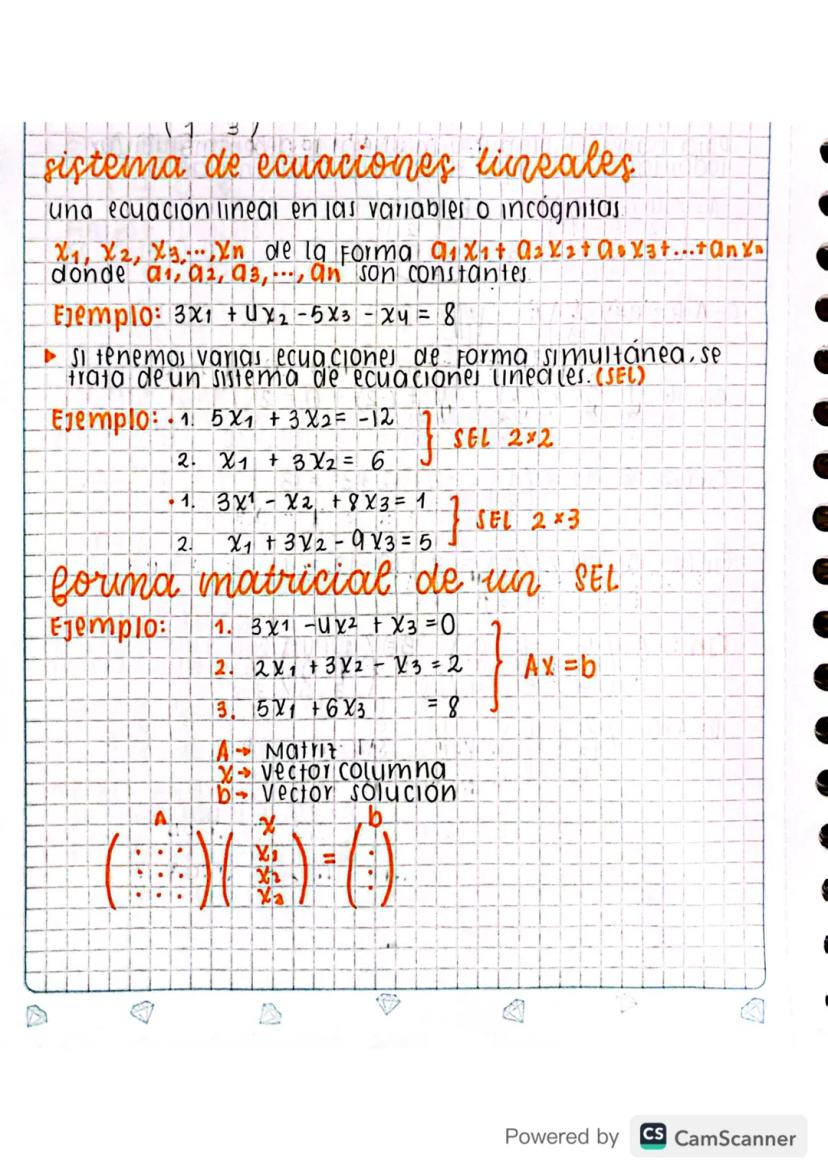 ( 1 3 )
sistema de ecuaciones lineales
una ecuación lineal en las variables o incógnitas
x1, x2, x3,...,xn de la forma a1x1 + a2x2 + a3x3 + ... + anxn
donde a1, a2, a3, ..., an son constantes
Ejemplo: 3x1 + 4x2 - 5x3 - x4 = 8
▸ si tenemos varias ecuaciones de forma simultánea, se
trata de un sistema de ecuaciones lineales. (SEL)
Ejemplo: • 1. 5x1 + 3x2 = -12
2. x1 + 3x2 = 6 } SEL 2x2
• 1. 3x1 - x2 + 8x3 = 1
2. x1 + 3x2 - 9x3 = 5 } SEL 2x3
forma matricial de un SEL
Ejemplo: 1. 3x1 - 4x2 + x3 = 0
2. 2x1 + 3x2 - x3 = 2 } Ax = b
3. 5x1 + 6x3 = 8
A → Matriz
x → vector columna
b → vector solución
A x b
( : : : ) ( x1 x2 x3 ) = ( : )
Powered by CS CamScanner